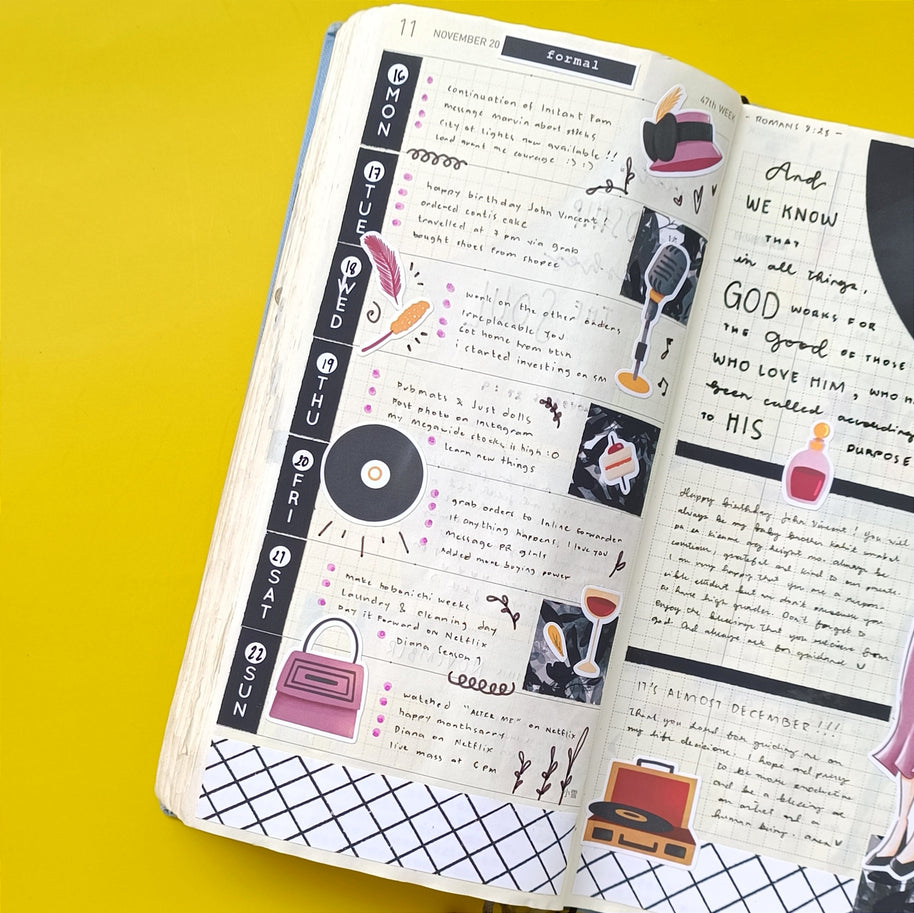 11 NOVEMBER 20
formal
47th WEEK
16 MON
continuation of Instant Pam
message marvin about stickers
City of lights now available !!
Lord grant me courage :) :)
17 TUE
happy birthday John Vincent !
ordered contis cake
travelled at 7 pm via grab
bought shoes from shopee
18 WED
work on the other orders
irreplacable you
Got home from btsn
i started investing on SM
19 THU
Pubmats & Just dolls
Post photo on Instagram
my megawide stocks is high :O
learn new things
20 FRI
grab orders to Inline forwarder
If anything happens, I love you
message PR girls
added more buying power
21 SAT
make hobonichi weeks
Laundry & cleaning day
Pay it Forward on Netflix
Diana Season 1
22 SUN
watched "ALTER ME" on Netflix
happy monthsarry
Diana on Netflix
live mass at 6 pm
- ROMANS 8:28 -
And
WE KNOW
THAT
in all things,
GOD WORKS FOR
THE good OF THOSE
WHO LOVE HIM, WHO
been called according
TO HIS
PURPOSE
Happy birthday, John Vincent! You will
always be my baby brother kahit
na sa kisame ang height mo. Always be
grateful and kind to our parents.
I am very happy that you are a
student but we don't you
to have high grades. Don't forget to
Enjoy the blessings that you receive from
God. And always ask for guidance
IT'S ALMOST DECEMBER!!!
Thank you Lord for guiding me on
my life decisions. I hope and pray
to be more productive
and be a blessing as
an artist and a
human being. Amen